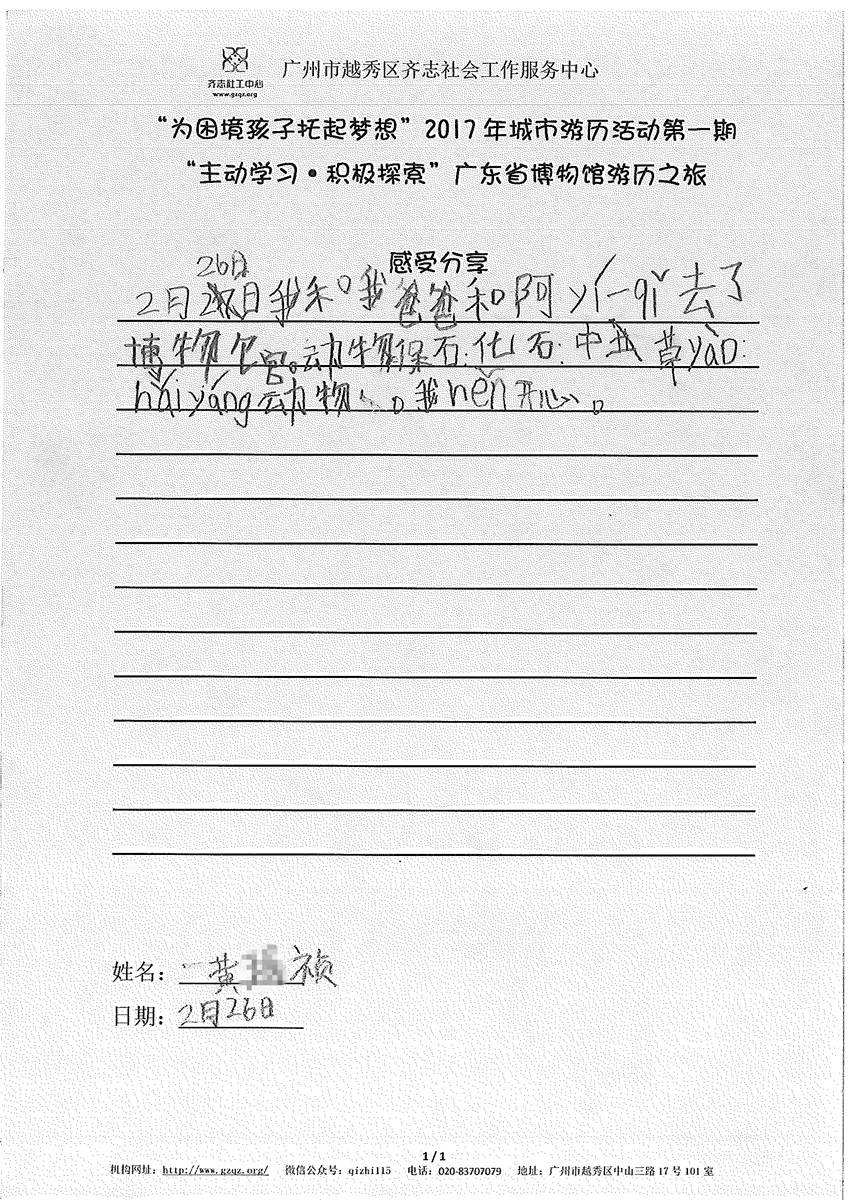 齐志社工中心
www.gzqz.org
广州市越秀区齐志社会工作服务中心
“为困境孩子托起梦想”2017年城市游历活动第一期
“主动学习·积极探索”广东省博物馆游历之旅
感受分享
26日
2月日我和我爸爸和阿yí一qǐ去了
博物官。动物保石:化石:中草yào:
hǎiyáng动物。我hěn开心。
姓名:黄禎
日期:2月26日
1/1
机构网址:http://www.gzqz.org/ 微信公众号:qizhi115 电话:020-83707079 地址:广州市越秀区中山三路17号101室